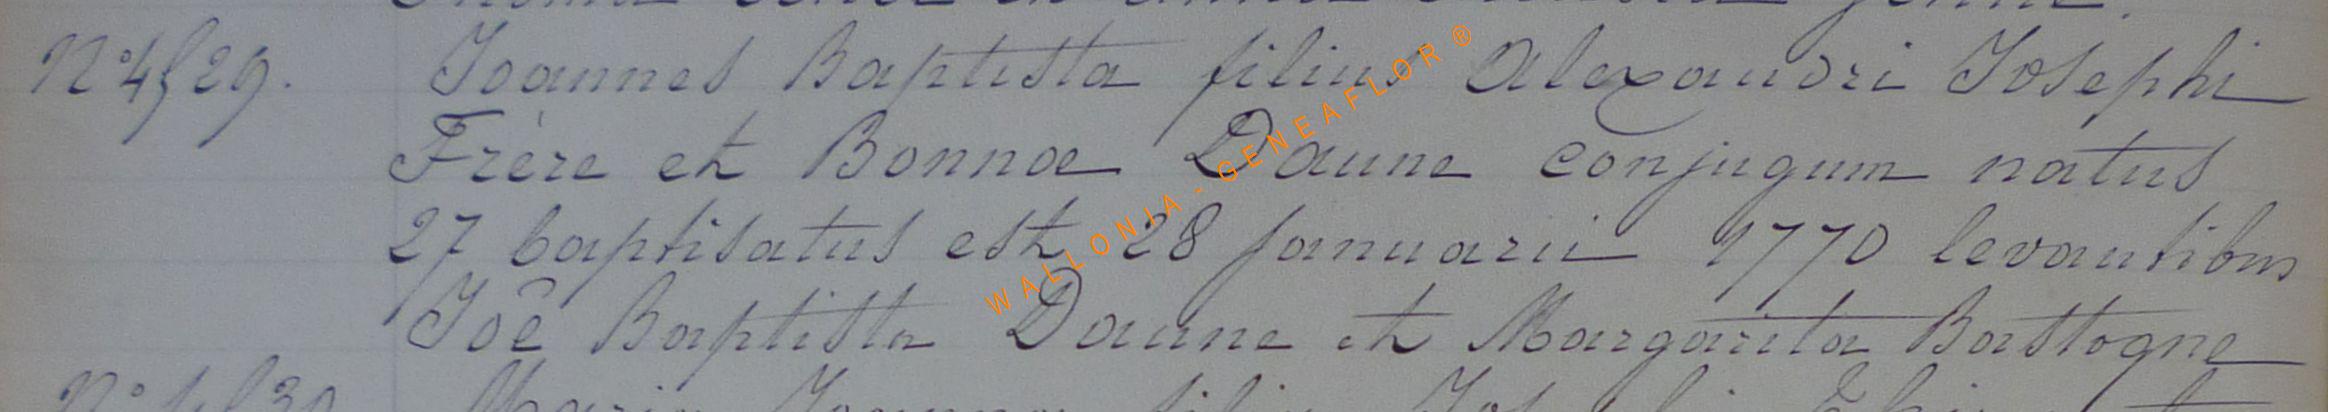 N° 4 f 29. Joannes Baptista filius Alexandri Josephi
Frère et Bonnæ Daune conjugum natus
27 baptisatus est 28 januarii 1770 levantibus
Joê Baptista Daune et Margarita Bastogne
WALLONIA - GENEAFLOR ®